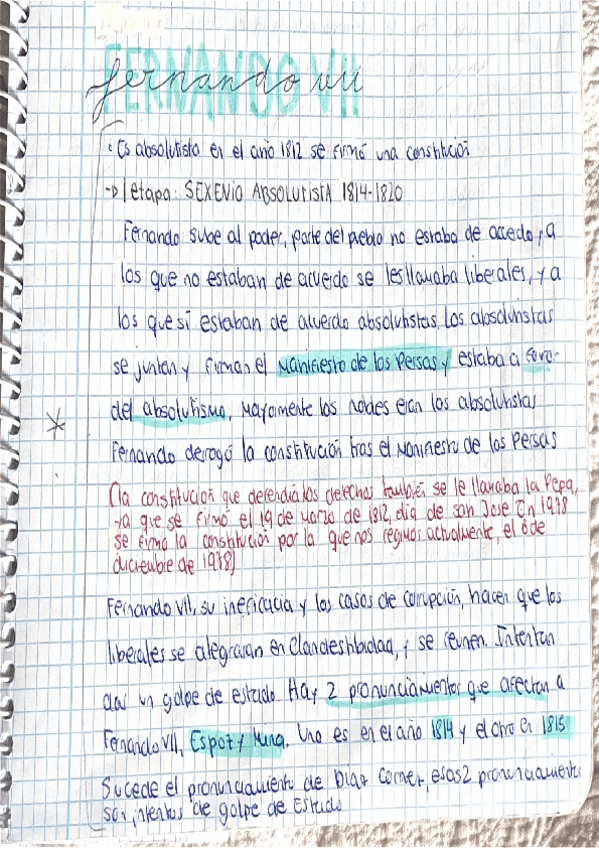 FERNANDO VII
fernando vii
Es absolutista en el año 1812 se firmó una constitución
1 etapa: SEXENIO ABSOLUTISTA 1814-1820
Fernando sube al poder, parte del pueblo no estaba de accedo, a
los que no estaban de acuerdo se les llamaba liberales, y a
los que sí estaban de acuerdo absolutistas. Los absolutistas
se juntan y firman el Manifiesto de los Persas y estaba a favor
del absolutismo, Mayormente los nobles eran los absolutistas
Fernando derogó la constitución tras el Manifiesto de los Persas
(la constitución que defendía los derechos también se le llamaba la Pepa,
ya que se firmó el 19 de marzo de 1812, día de san Jose En 1978
se firma la constitución por la que nos regimos actualmente, el 6 de
diciembre de 1978)
Fernando VII, su ineficacia y los casos de corrupción, hacen que los
liberales se alegraran en Clandestinidad, y se reunen. Intentan
dar un golpe de estado. Hay 2 pronunciamientos que afectan a
Fernando VII, Espoz y Mina. Uno es en el año 1814 y el otro en 1815
Sucede el pronunciamiento de Díaz esas 2 pronunciamientos
son intentos de golpe de Estado